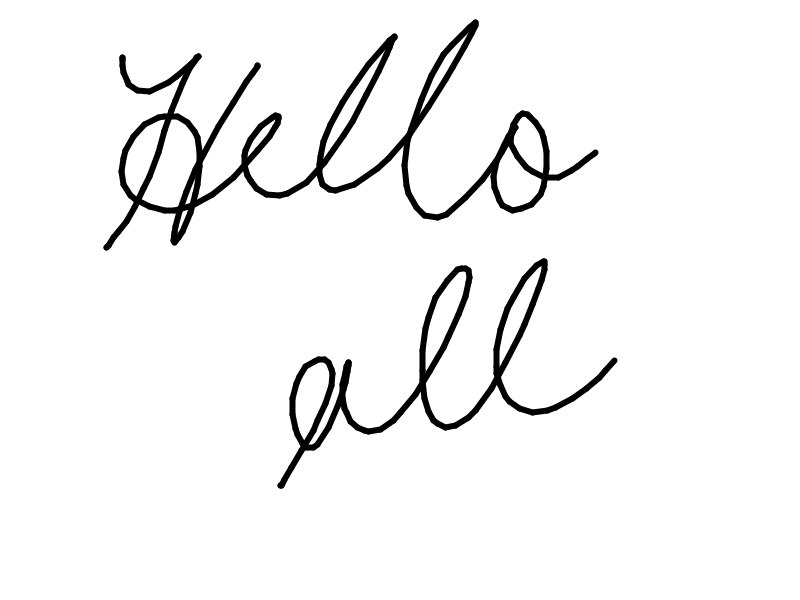 Hello
all